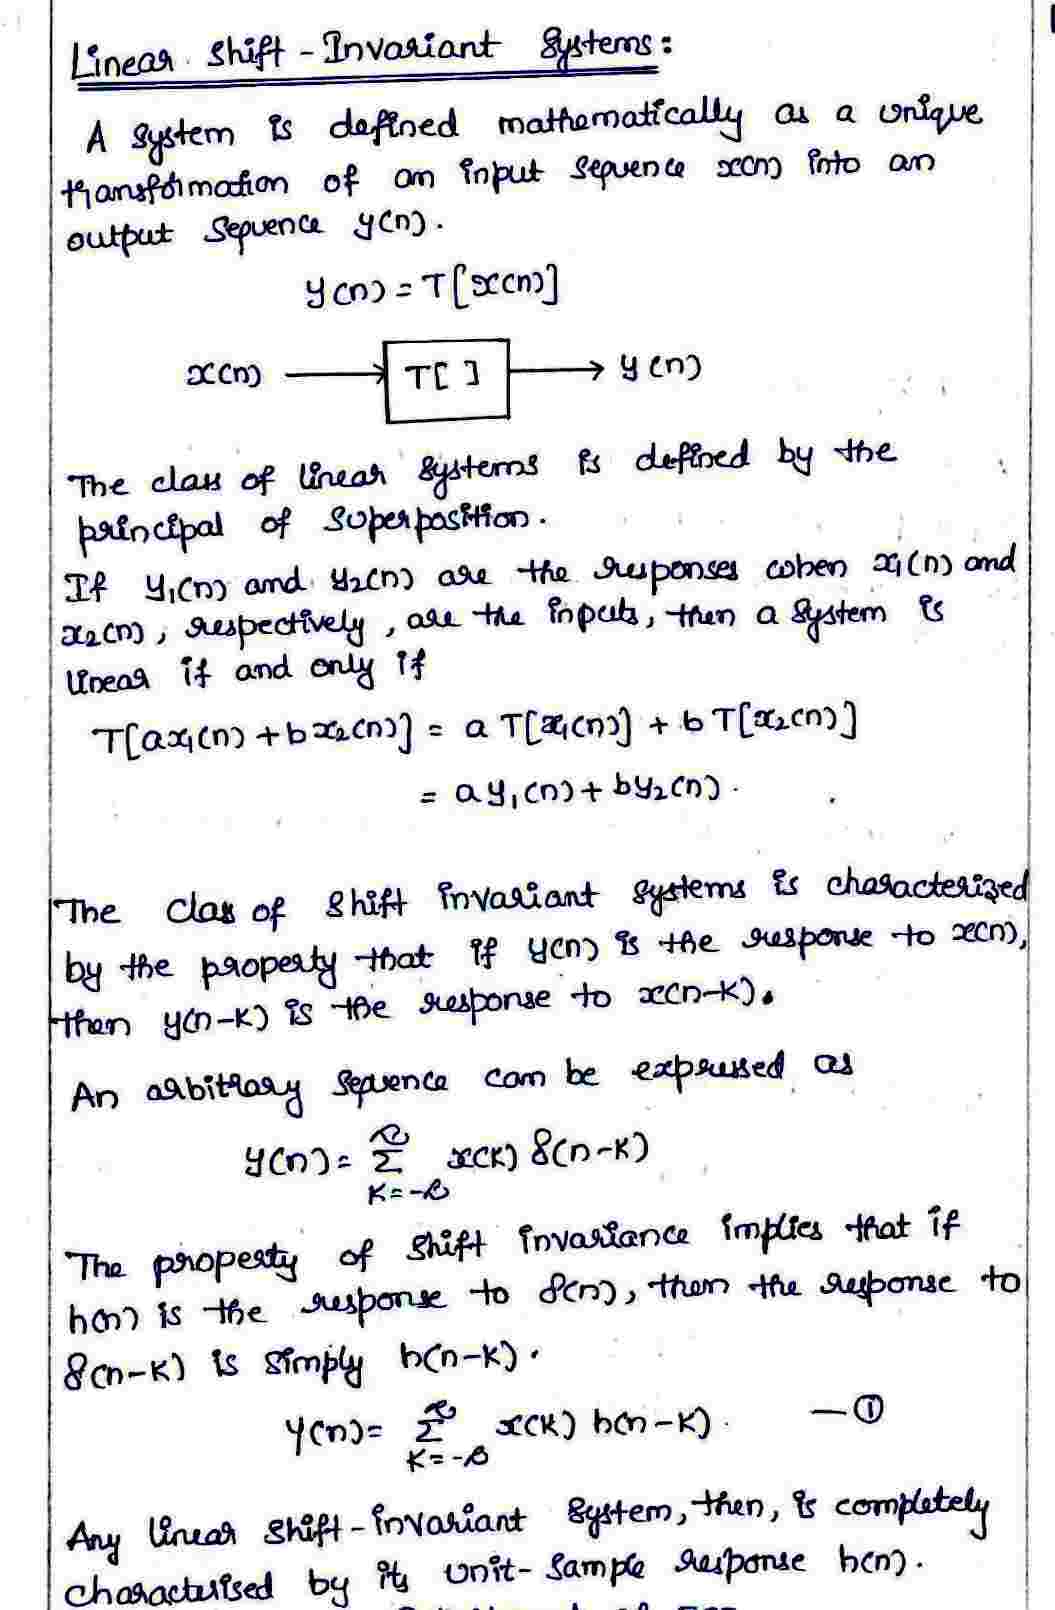 Linear Shift-Invariant Systems:
A system is defined mathematically as a unique
transformation of an input sequence x(n) into an
output sequence y(n).
y(n) = T[x(n)]
x(n) T[ ] y(n)
The class of linear systems is defined by the
principal of superposition.
If y₁(n) and y₂(n) are the responses when x₁(n) and
x₂(n), respectively, are the inputs, then a system is
linear if and only if
T[ax₁(n) + bx₂(n)] = a T[x₁(n)] + b T[x₂(n)]
= ay₁(n) + by₂(n).
The class of shift invariant systems is characterized
by the property that if y(n) is the response to x(n),
then y(n-k) is the response to x(n-k).
An arbitrary sequence can be expressed as
y(n) = Σ x(k) δ(n-k)
k=-∞
The property of shift invariance implies that if
h(n) is the response to δ(n), then the response to
δ(n-k) is simply h(n-k).
y(n) = Σ x(k) h(n-k). —①
k=-∞
Any linear shift-invariant system, then, is completely
characterised by its unit-sample response h(n).